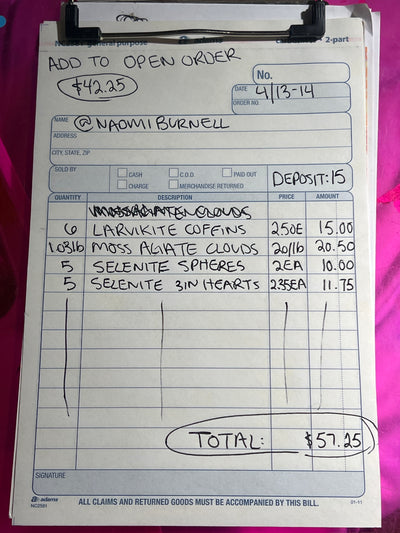 NC2581 general purpose adams 2-part
ADD TO OPEN ORDER
$42.25
No.
DATE 4/13-14
ORDER NO.
NAME @NAOMIBURNELL
ADDRESS
CITY, STATE, ZIP
SOLD BY CASH C.O.D. PAID OUT DEPOSIT:15
CHARGE MERCHANDISE RETURNED
QUANTITY DESCRIPTION PRICE AMOUNT
6 LARVIKITE COFFINS 250E 15.00
1.03lb MOSS AGIATE CLOUDS 20/lb 20.50
5 SELENITE SPHERES 2EA 10.00
5 SELENITE 3IN HEARTS 235EA 11.75
TOTAL: $57.25
SIGNATURE
adams
NC2581
ALL CLAIMS AND RETURNED GOODS MUST BE ACCOMPANIED BY THIS BILL.
01-11